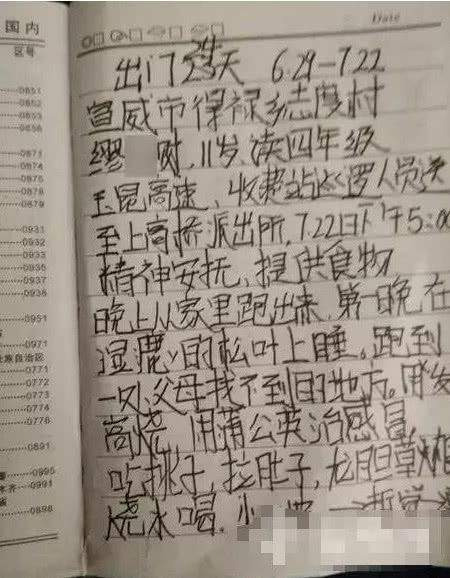 国内
区号
0851
0852
0853
0856
0871
0874
0875
0878
0879
0931
0932
0933
0935
0937
0938
0951
0971
族自治区
0771
0772
0773
0774
0776
0891
0995
齐---0991
0898
Date
出门天 6.29-7.22
宣威市得禄乡志度村
缪财,11岁,读四年级
昆高速,收费站巡逻人员送
至上高桥派出所,7.22日下午5:00
精神安抚,提供食物
晚上从家里跑出来,第一晚在
湿漉的松叶上睡。跑到
一处父母找不到的地方。发
高烧,用蒲公英治感冒,
吃桃子,拉肚子,龙胆草
烧水喝。